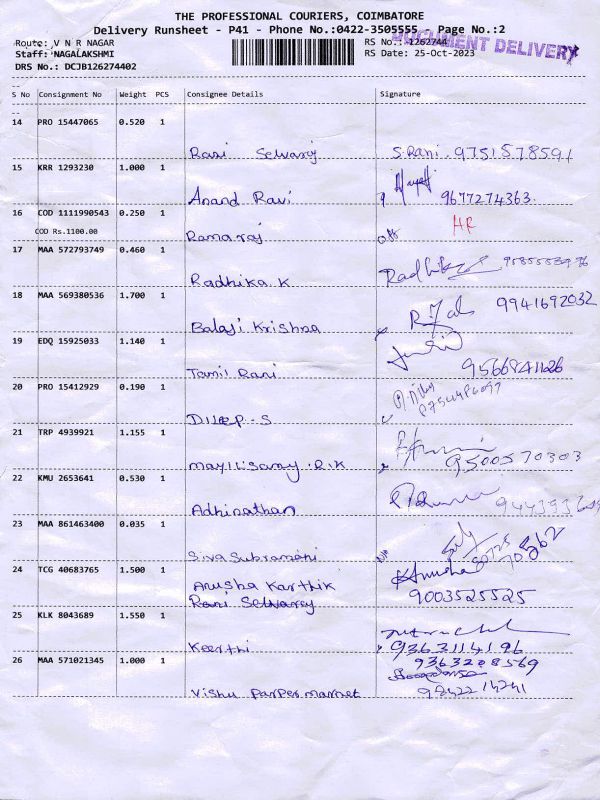 THE PROFESSIONAL COURIERS, COIMBATORE
Delivery Runsheet - P41 - Phone No.:0422-3505555 Page No.:2
DOCUMENT DELIVERY
Route: V N R NAGAR RS No.: 1262744
Staff: NAGALAKSHMI RS Date: 25-Oct-2023
DRS No.: DCJB126274402
S No Consignment No Weight PCS Consignee Details Signature
14 PRO 15447065 0.520 1
Rani Selvaraj S.Rani. 9751578591
15 KRR 1293230 1.000 1
Anand Ravi 9677274363
16 COD 1111990543 0.250 1
COD Rs.1100.00
Ramaraj HR
17 MAA 572793749 0.460 1
Radhika.K
18 MAA 569380536 1.700 1
Balaji Krishna 9941692032
19 EDQ 15925033 1.140 1
Tamil Rani 9566841126
20 PRO 15412929 0.190 1
Dileep.S
21 TRP 4939921 1.155 1
Mayilsamy.R.K 9500570303
22 KMU 2653641 0.530 1
Adhinathan
23 MAA 861463400 0.035 1
Siva Subramani
24 TCG 40683765 1.500 1
Anusha Karthik
Rani Selvaraj 9003525525
25 KLK 8043689 1.550 1
Keerthi 9363114196
26 MAA 571021345 1.000 1
9363208569
Vishu Paper market